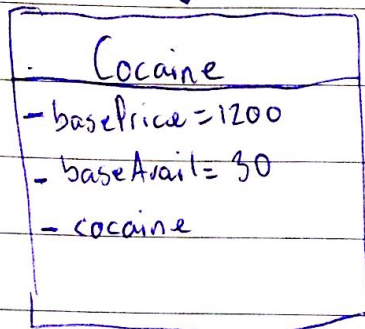 Cocaine
- basePrice = 1200
- baseAvail = 30
- cocaine